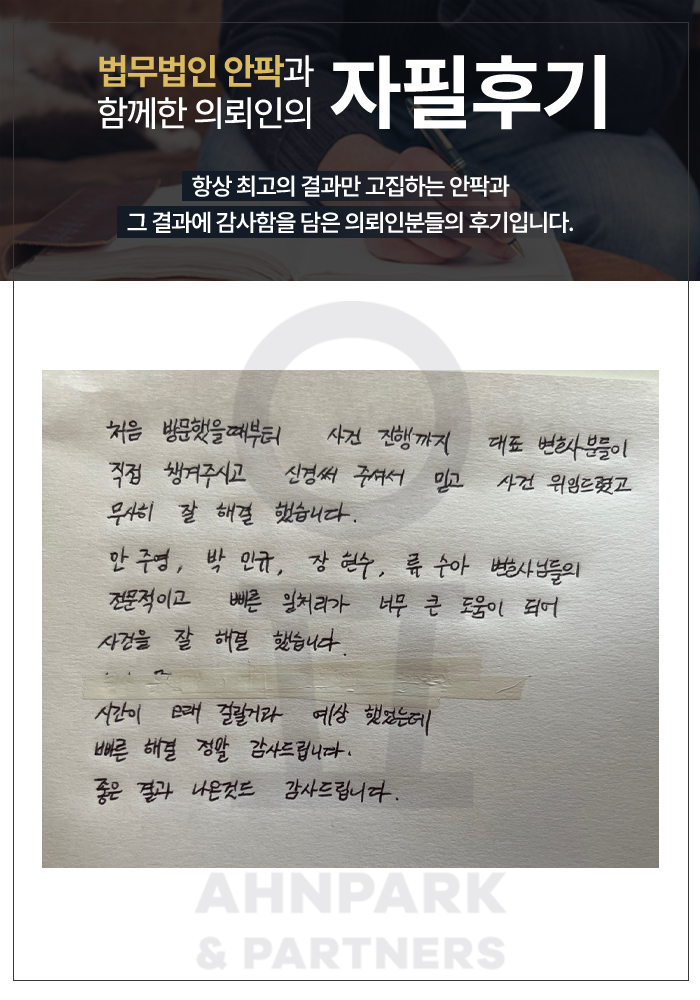 법무법인 안팍과
함께한 의뢰인의
자필후기
항상 최고의 결과만 고집하는 안팍과
그 결과에 감사함을 담은 의뢰인분들의 후기입니다.
처음 방문했을때부터 사건 진행까지 대표 변호사분들이
직접 챙겨주시고 신경써 주셔서 믿고 사건 위임드렸고
무사히 잘 해결 했습니다.
안주영, 박 민규, 장 현수, 류 수아 변호사님들의
전문적이고 빠른 일처리가 너무 큰 도움이 되어
사건을 잘 해결 했습니다.
시간이 오래 걸릴거라 예상 했었는데
빠른 해결 정말 감사드립니다.
좋은 결과 나온것도 감사드립니다.
AHNPARK
& PARTNERS